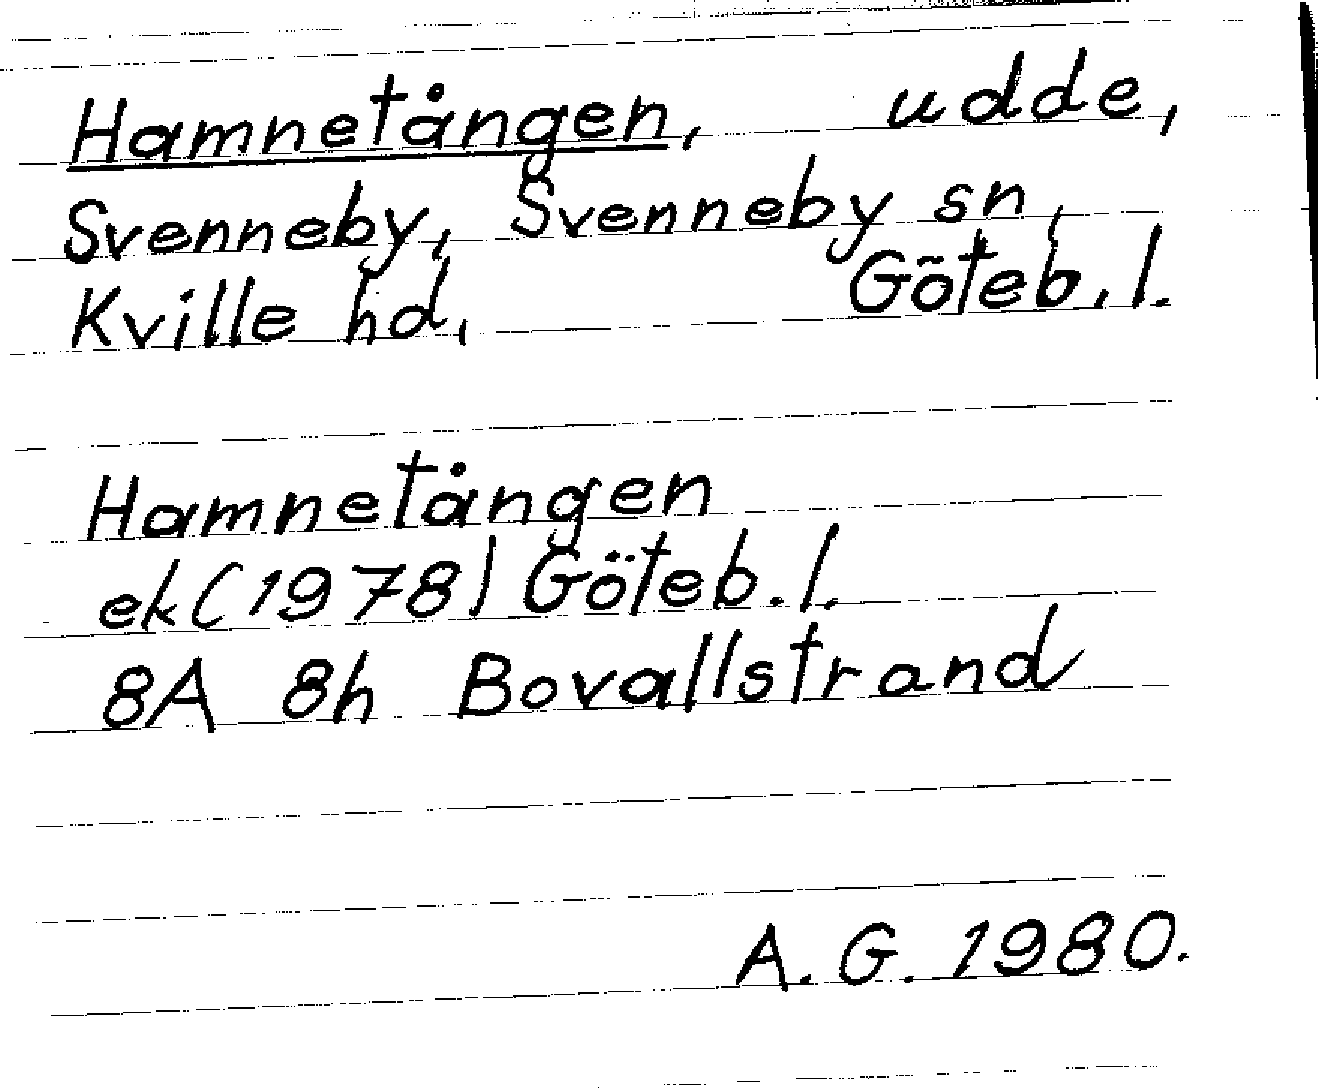 Hamnetången, udde,
Svenneby, Svenneby sn,
Kville hd, Göteb.l.
Hamnetången
ek (1978) Göteb.l.
8A 8h Bovallstrand
A.G. 1980.